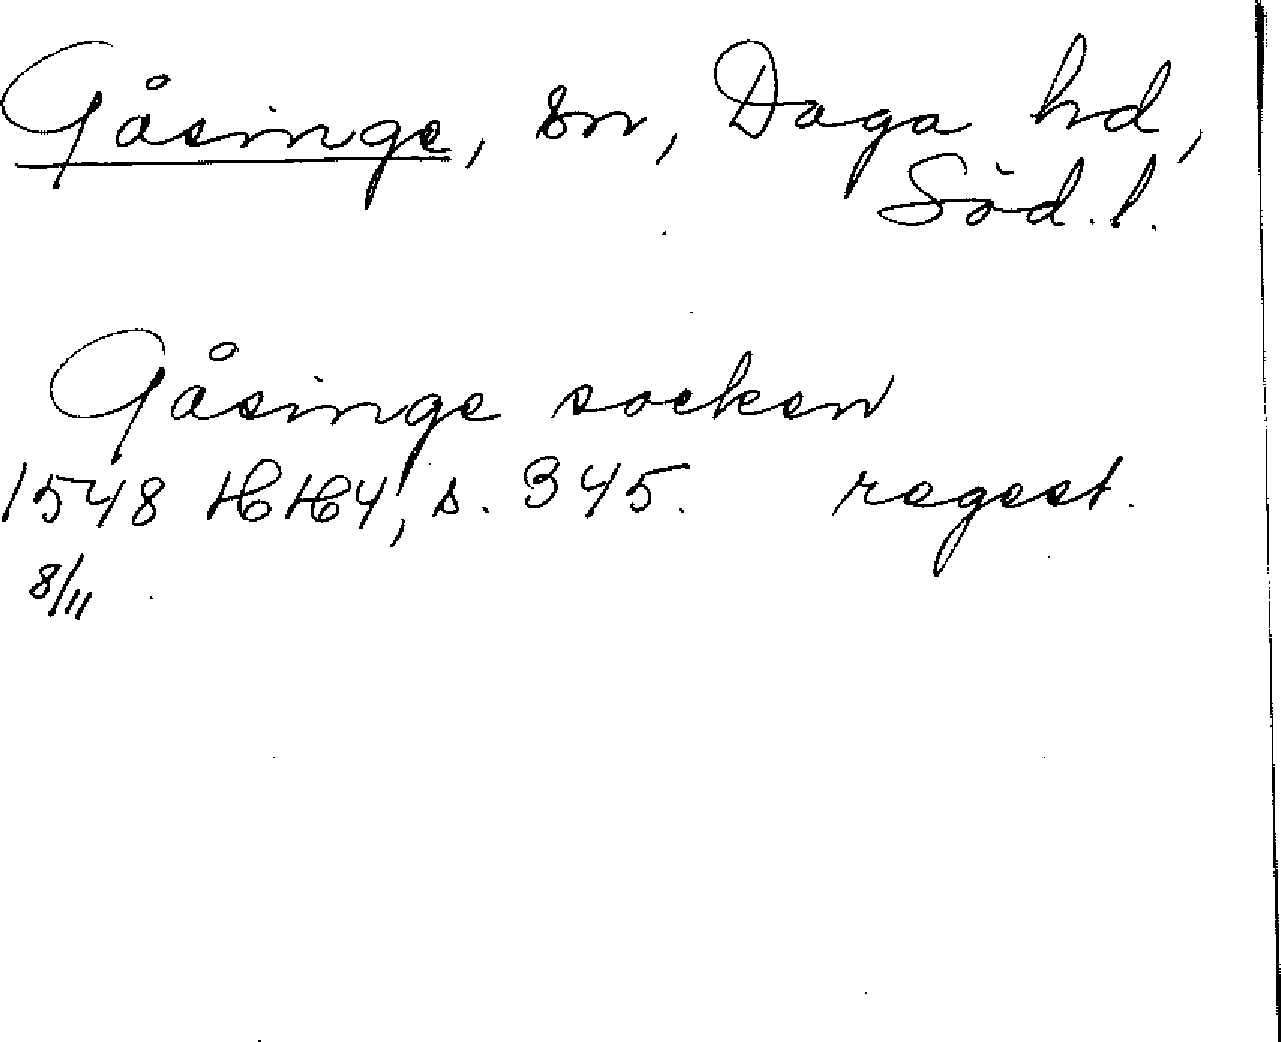 Gåsinge, sn, Daga hd,
Söd.l.
Gåsinge socken
1548 HH4, s. 345. regest.
8/11